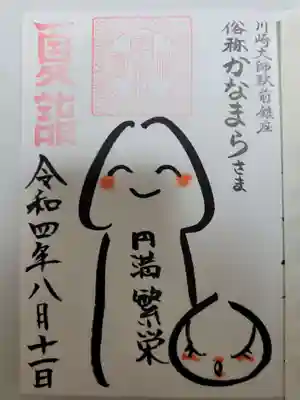 川崎大師駅前鎮座
俗称かなまらさま
円満繁栄
夏詣
令和四年八月十一日